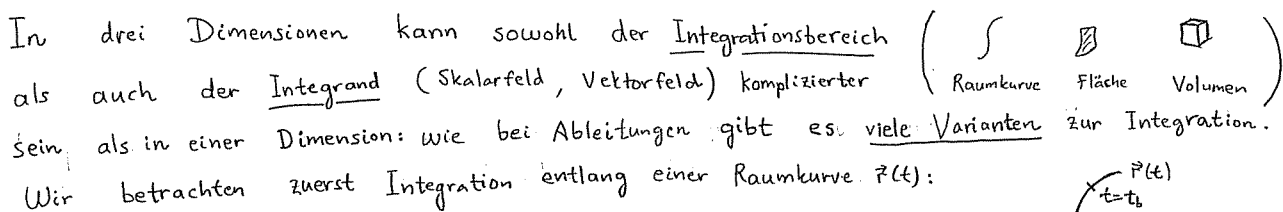 In drei Dimensionen kann sowohl der Integrationsbereich
als auch der Integrand (Skalarfeld, Vektorfeld) komplizierter
Raumkurve Fläche Volumen
sein als in einer Dimension: wie bei Ableitungen gibt es viele Varianten zur Integration.
Wir betrachten zuerst Integration entlang einer Raumkurve r⃗(t):
r⃗(t)
t=t_b